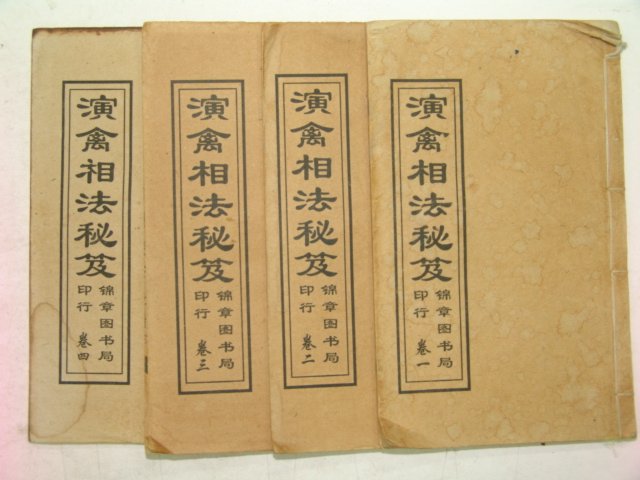 演禽相法秘笈
锦章图书局
印行
卷一
演禽相法秘笈
锦章图书局
印行
卷二
演禽相法秘笈
锦章图书局
印行
卷三
演禽相法秘笈
锦章图书局
印行
卷四